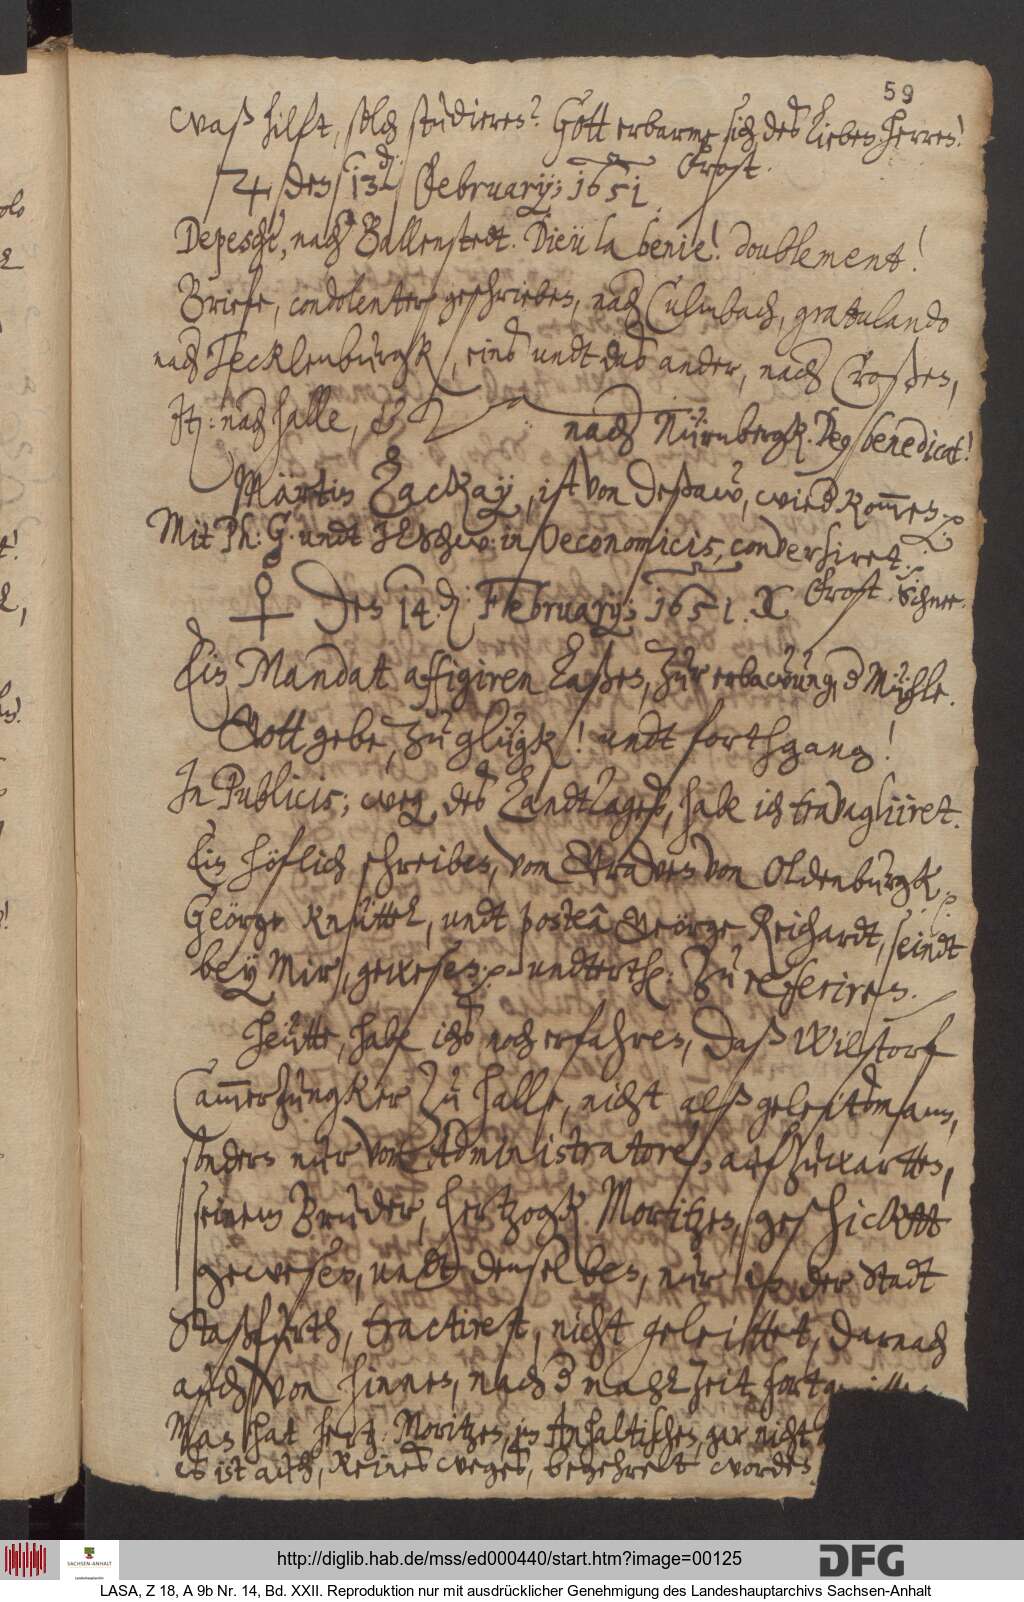 59
waß hilft, solch studieren? Gott erbarme sich des lieben Herren!
♃ den 13den Februarij; 1651. Frost.
Depeschè, nach Ballenstedt. Dieu la benie! doublement!
Briefe, condolenter geschrieben, nach Culmbach, gratulando
nach Tecklenburgk, eins undt das ander, nach Croßen,
It: nach Halle, nach Nürnbergk. Deus benedicat!
Märtin Zackaÿ, ist von Deßaw, wied kom̅en
Mit Ph: G. undt in Oeconomicis, conversiret.
♀ Den 14.d. Februarij; 1651. X Frost. Schnee.
Ein Mandat affigiren laßen, zur erbawung, d Mühle.
Gott gebe, zu glügk! undt forthgang!
In Publicis; weg. des Landtages, habe ich travagliiret.
Ein höflich schreiben, vom Graven von Oldenburgk
Geörge Knüttel, undt posteà Geörge Reichardt, seindt
beÿ Mir, gewesen. undterth: zu referiren.
Heütte, habe ichs noch erfahren, daß Wilstorf
Cam̅erJungker zu Halle, nicht alß geleitsman,
sondern nur vom Administratore, aufzuwarten,
seinem Bruder, Hertzogk Moritzen, geschicktt
gewesen, undt denselben, nur in der Stadt
Staßfurth, tractiret, nicht geleittet, darnach
auch von hinnen, nach d mahlzeit, fort
Man hat Hertz: Moritzen, im Anhaltischen, gar nicht
es ist auch, keines weges, begehret worden
http://diglib.hab.de/mss/ed000440/start.htm?image=00125
SACHSEN-ANHALT
DFG
LASA, Z 18, A 9b Nr. 14, Bd. XXII. Reproduktion nur mit ausdrücklicher Genehmigung des Landeshauptarchivs Sachsen-Anhalt